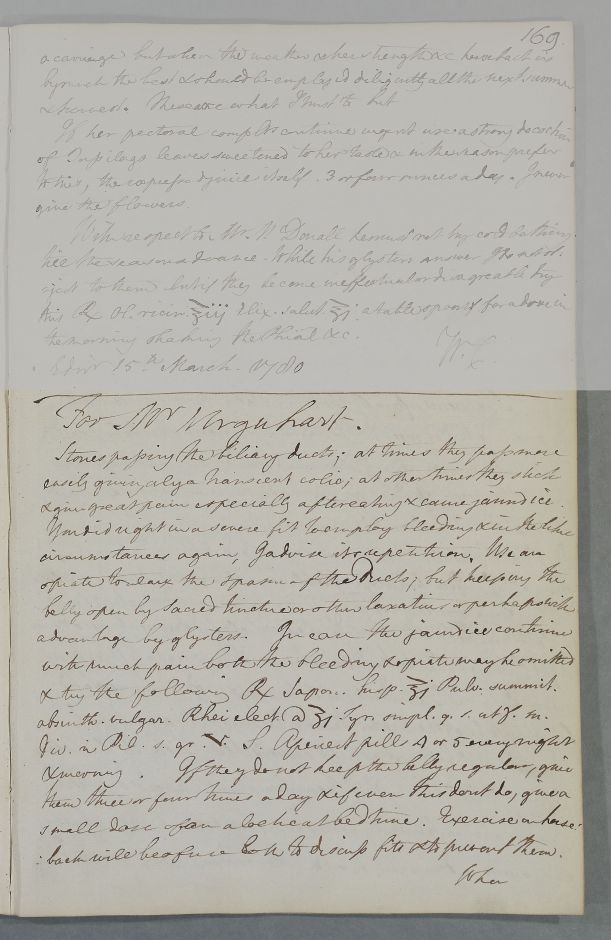 169.
a carriage but when the weather & her strength &c horseback is
by much the best & should be employed diligently all the next summer
& harvest. These are what I trust to but
If her pectoral complts continue urgent use a strong decoction
of Tussilago leaves sweetened to her taste & in the season prefer
to this, the expressed juice itself. 3 or four ounces a day. I never
give the flowers.
With respect to Mr. McDonald he must not try cold bathing
till the season advance. While his glysters answer I do not ob-
ject to them but if they become ineffectual or disagreeable try
this ℞ Ol. ricin. ℥iij Elix. salut. ℥j a table spoonful for a dose in
the morning shaking the Phial &c.
Edinr. 15th March. 1780 W. C.
For Mr Urquhart.
Stones passing the biliary ducts; at times they pass more
easily giving only a transient colic; at other times they stick
& give great pain especially after eating & cause jaundice.
You did right in a severe fit to employ bleeding & in the like
circumstances again, I advise its repetition. Use an
opiate to relax the spasm of the Ducts; but keeping the
belly open by Sacred tincture or other laxative or perhaps with
advantage by glysters. In case the jaundice continue
with much pain both the bleeding & opiate may be omitted
& try the following ℞ Sapon. hisp. ℥j Pulv. summit.
absinth. vulgar. Rhei elect. a ʒj Syr. simpl. q. s. ut f. m.
div. in Pil. s. gr. v. S. Aperient pills 4 or 5 every night
& morning. If they do not keep the belly regular, give
them three or four times a day & if even this dont do, give a
small dose of an aloetic at bed time. Exercise on horse-
:back will be of use both to discuss fits & to prevent them.
When